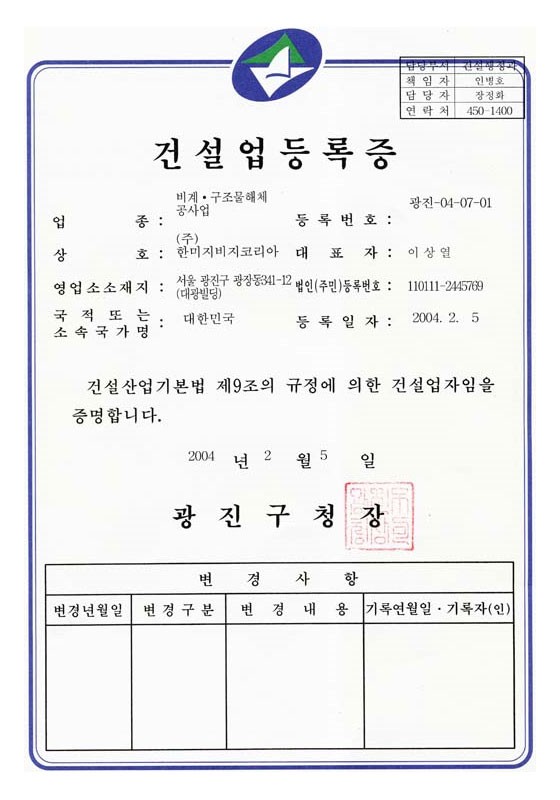 담당부서 건설행정과
책 임 자 인병호
담 당 자 장정화
연 락 처 450-1400
건설업등록증
업 종 : 비계·구조물해체 공사업
등 록 번 호 : 광진-04-07-01
상 호 : (주) 한미지비지코리아
대 표 자 : 이 상 열
영업소소재지 : 서울 광진구 광장동341-12 (대광빌딩)
법인(주민)등록번호 : 110111-2445769
국 적 또 는 소 속 국 가 명 : 대한민국
등 록 일 자 : 2004. 2. 5
건설산업기본법 제9조의 규정에 의한 건설업자임을
증명합니다.
2004 년 2 월 5 일
광 진 구 청 장
변 경 사 항
변경년월일 변 경 구 분 변 경 내 용 기록연월일·기록자(인)